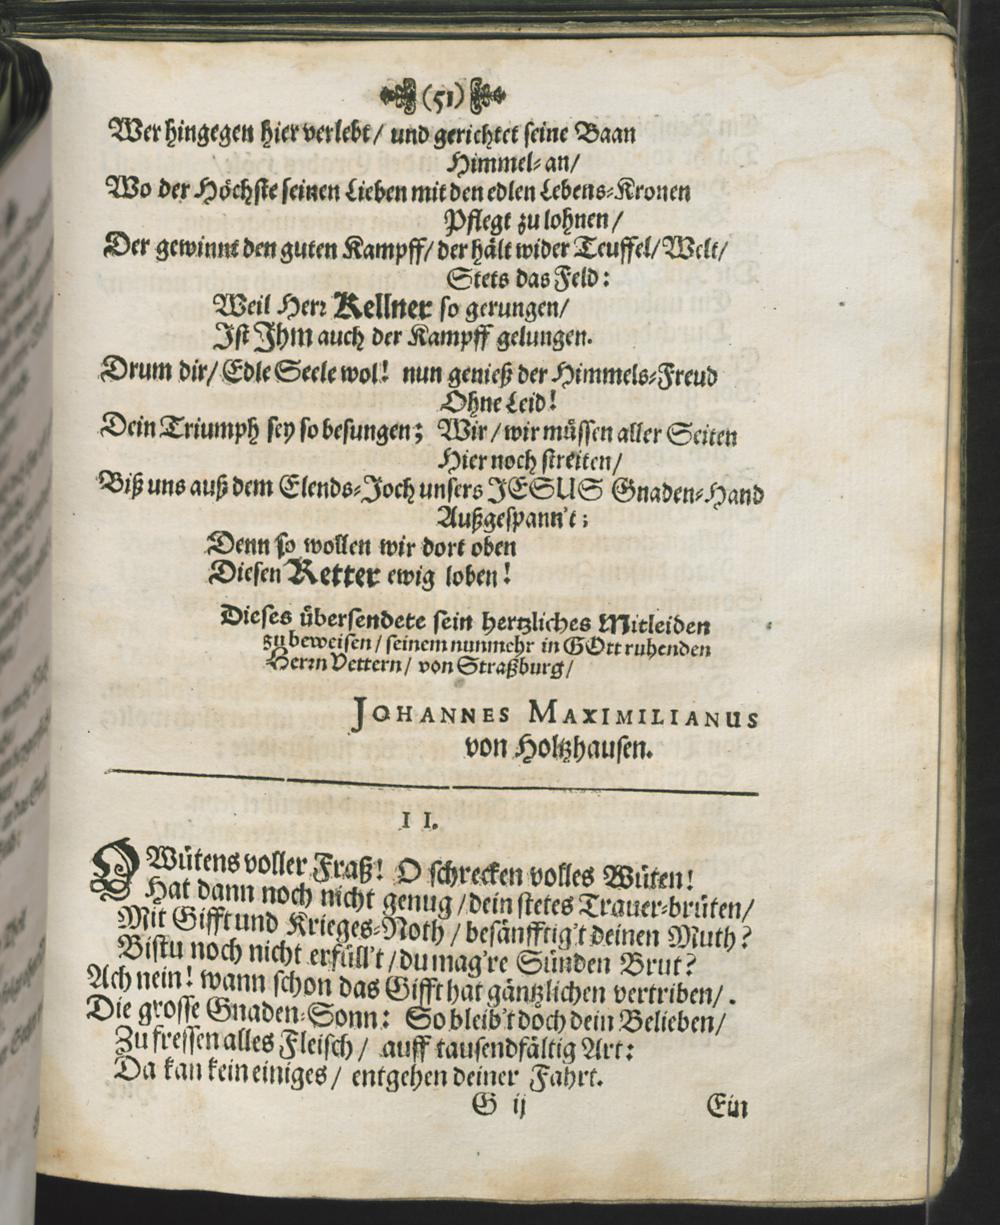 (51)
Wer hingegen hier verlebt/ und gerichtet seine Baan
Himmel-an/
Wo der Höchste seinen Lieben mit den edlen Lebens-Kronen
Pflegt zu lohnen/
Der gewinnt den guten Kampff/ der hält wider Teuffel/ Welt/
Stets das Feld:
Weil Herr Kellner so gerungen/
Ist Ihm auch der Kampff gelungen.
Drum dir/ Edle Seele wol! nun genieß der Himmels-Freud
Ohne Leid!
Dein Triumph sey so besungen; Wir/ wir müssen aller Seiten
Hier noch streiten/
Biß uns auß dem Elends-Joch unsers JESUS Gnaden-Hand
Außgespann't;
Denn so wollen wir dort oben
Diesen Retter ewig loben!
Dieses übersendete sein hertzliches Mitleiden
zu beweisen/ seinem nunmehr in GOtt ruhenden
Herrn Vettern/ von Straßburg/
JOHANNES MAXIMILIANUS
von Holtzhausen.
II.
O Wütens voller Fraß! O schrecken volles Wüten!
Hat dann noch nicht genug/ dein stetes Trauer-brüten/
Mit Gifft und Krieges-Noth/ besänfftig't deinen Muth?
Bistu noch nicht erfüll't/ du mag're Sünden Brut?
Ach nein! wann schon das Gifft hat gäntzlichen vertriben/.
Die grosse Gnaden-Sonn: So bleib't doch dein Belieben/
Zu fressen alles Fleisch/ auff tausendfältig Art:
Da kan kein einiges/ entgehen deiner Fahrt.
G ij Ein